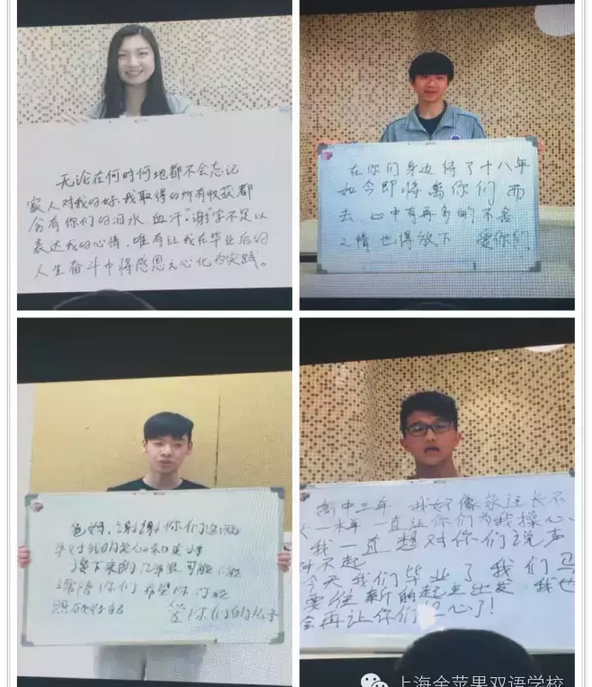 无论在何时何地都不会忘记
家人对我的好,我取得的所有收获都
含有你们的泪水、血汗。谢字不足以
表达我的心情,唯有让我在毕业后的
人生奋斗中将感恩之心化为实践。
在你们身边待了十八年
如今即将离你们而
去 心中有再多的不舍
之情 也得放下 爱你们
爸妈,谢谢你们这
接下来的几年里可能
陪你们 希望你们能
照顾好自己
爱你们的儿子
高中三年 我好像永远长不
大一样 一直让你们为我操心
我一直想对你们说声
对不起
今天我们毕业了 我们马
要往新的起点出发 我也
会再让你们担心了!
上海金苹果双语学校